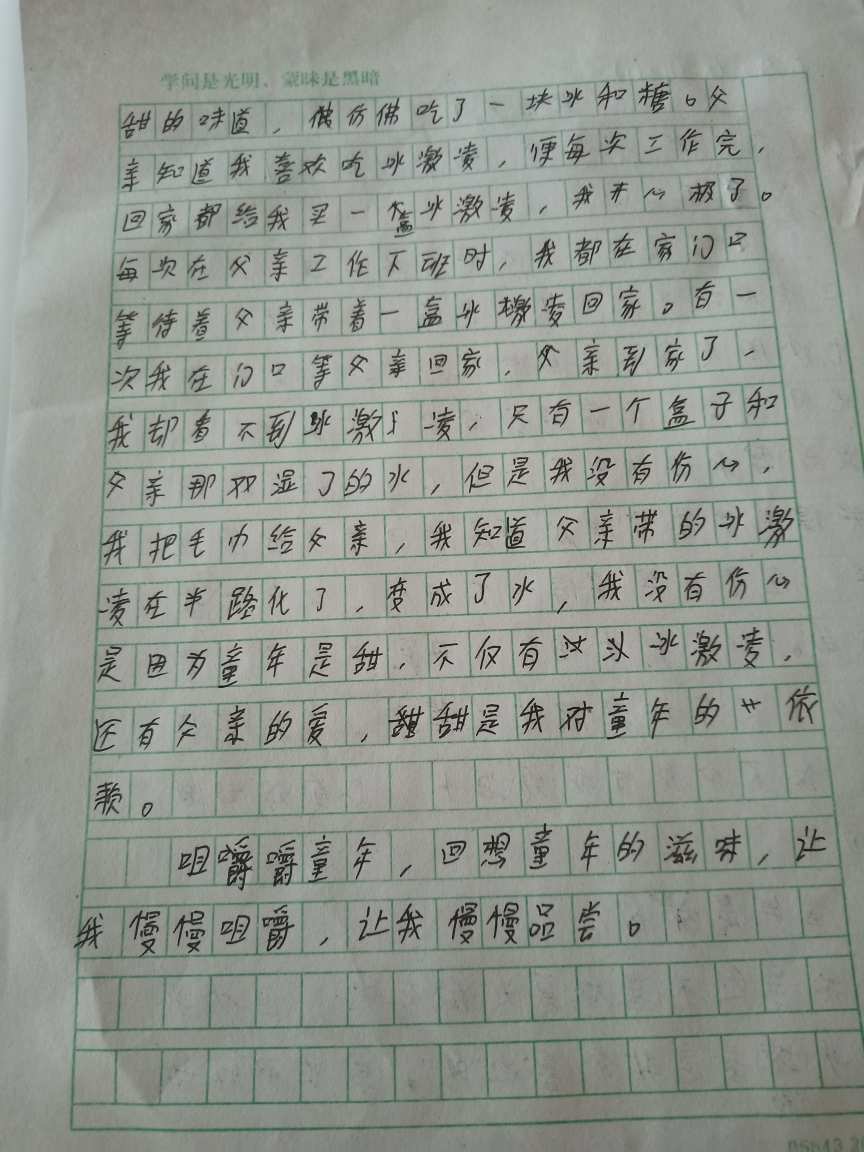 学问是光明、蒙昧是黑暗
甜的味道，偶仿佛吃了一块冰和糖。父
亲知道我喜欢吃冰激凌，便每次工作完，
回家都给我买一盒冰激凌，我开心极了。
每次在父亲工作下班时，我都在家门口
等待着父亲带着一盒冰激凌回家。有一
次我在门口等父亲回家，父亲到家了，
我却看不到冰激凌，只有一个盒子和
父亲那双湿了的水，但是我没有伤心，
我把毛巾给父亲，我知道父亲带的冰激
凌在半路化了，变成了水，我没有伤心
是因为童年是甜，不仅有冰激凌，
还有父亲的爱，甜甜是我对童年的依
款。
咀嚼嚼童年，回想童年的滋味，让
我慢慢咀嚼，让我慢慢品尝。